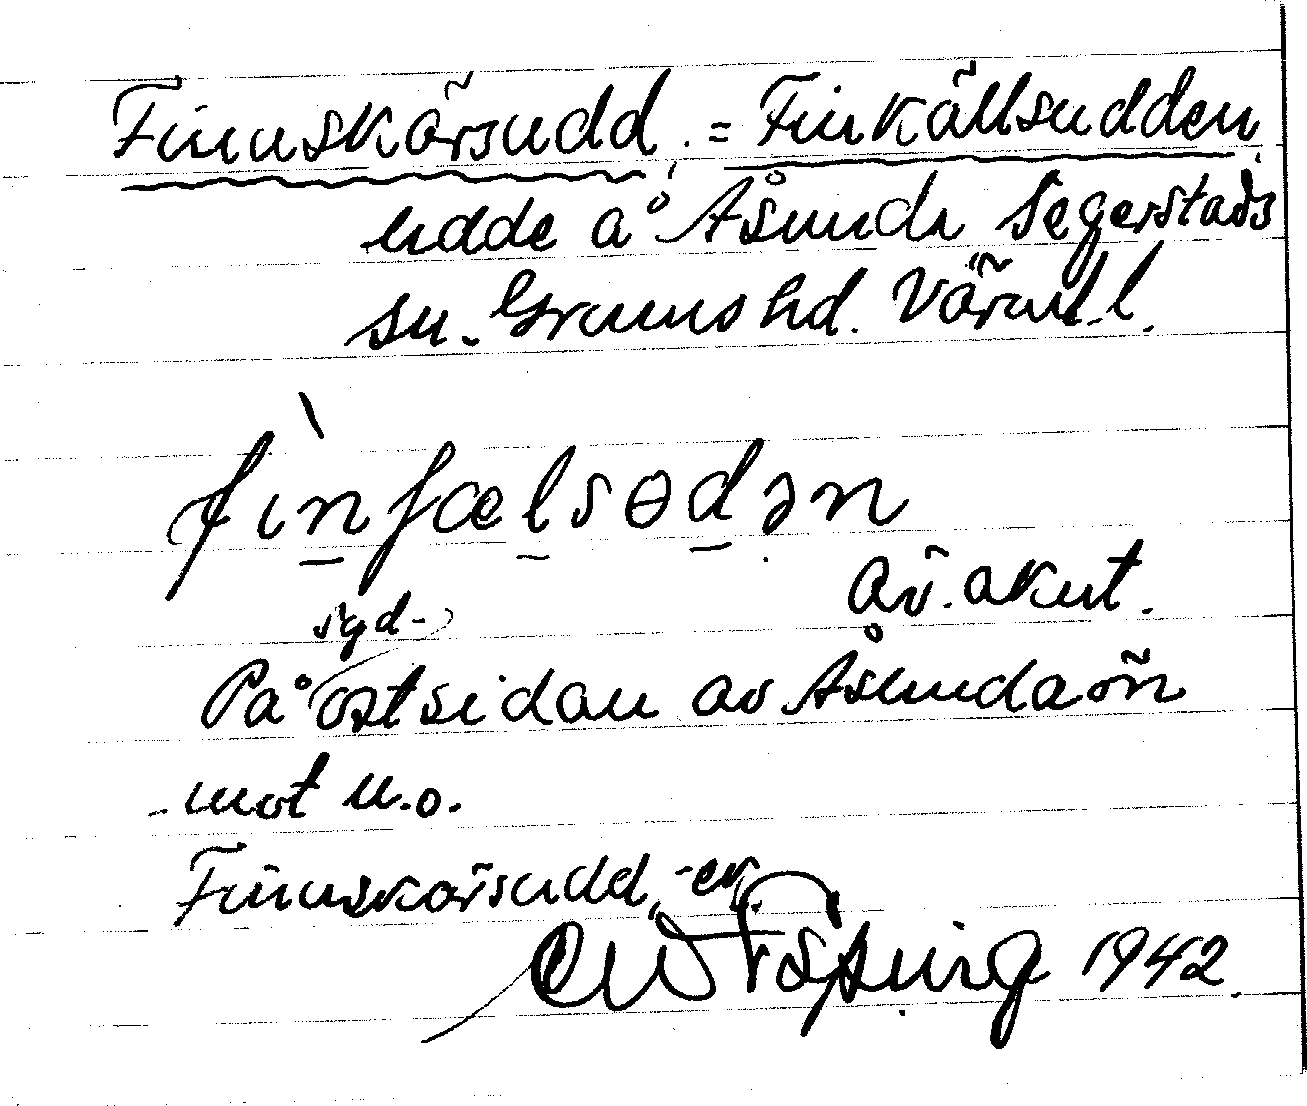 Finnskärsudd. = Finkällsudden.
udde å Åsunda Segerstads
sn. Grums hd. Värml. l.
fìnfælsɵdən
av. akut.
syd-
På östsidan av Åsundaön
mot n.o.
Finnskärsudd, -en.
1942.